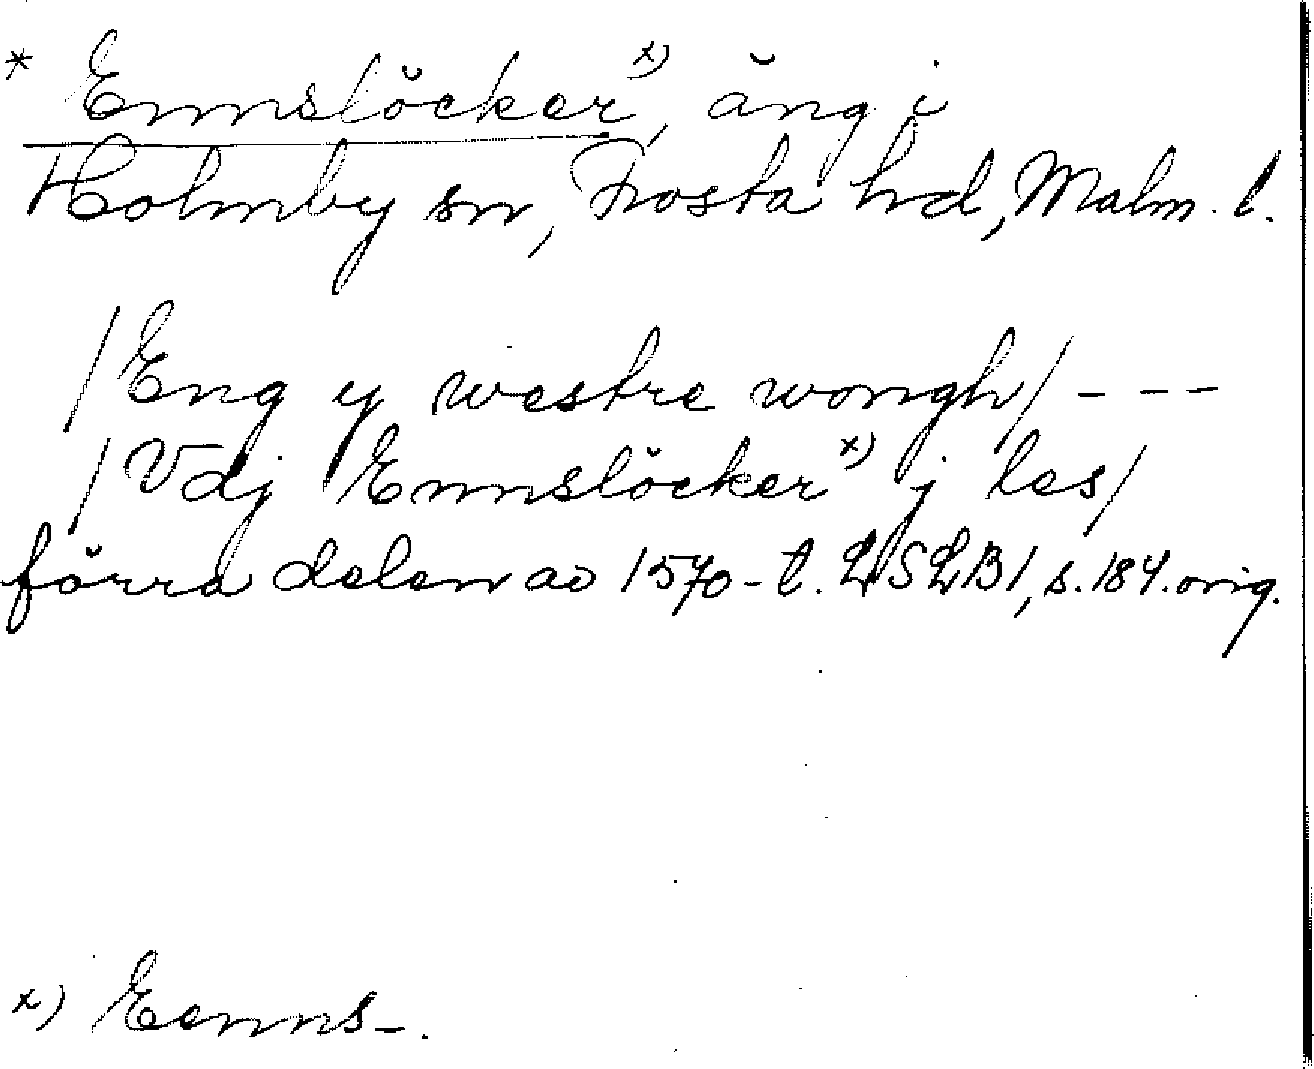 * Ennslöcker x), äng i
Holmby sn, Frosta hd, Malm. l.
/Eng y westre wongh/ - - -
/Vdj Ennslöcker x) j les/
förra delen av 1570-t. LSLB1, s. 184. orig.
x) Eenns-.